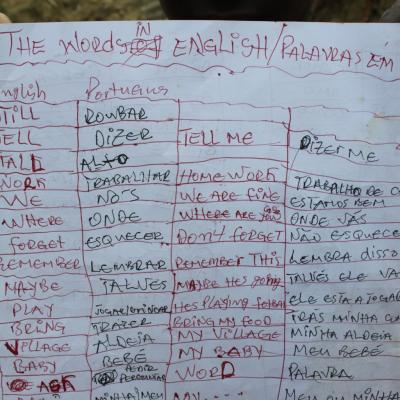 THE WORDS IN ENGLISH/PALAVRAS EM
English Portugius
TILL ROUBAR
TELL DIZER TELL ME DIZER ME
TALL ALTO
WORK TRABALHAR HOME WORK TRABALHO DE
WE NOIS WE ARE FINE ESTAMOS BEM
WHERE ONDE WHERE ARE ONDE VAS
FORGET ESQUECER DON'T FORGET NÃO ESQUECE
REMEMBER LEMBRAR REMEMBER THIS LEMBRA DISSO
MAYBE TALVES MAYBE HES GOING TALVÉS ELE VA
PLAY JOGAR HES PLAYING ELE ESTA A JOGAR
BRING TRAZER BRING MY FOOD TRAS MINHA
VILLAGE ALDEIA MY VILLAGE MINHA ALDEIA
BABY BEBÉ MY BABY MEU BEBÉ
PEDIR PERGUNTAR WORD PALAVRA
MINHA/MEU MY